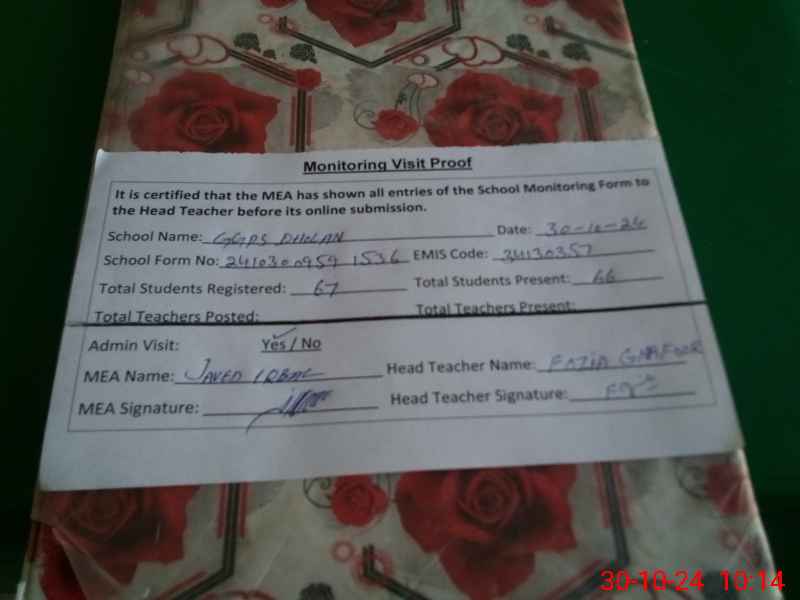 Monitoring Visit Proof
It is certified that the MEA has shown all entries of the School Monitoring Form to
the Head Teacher before its online submission.
School Name: GGPS DHOLAN Date: 30-10-24
School Form No: 2410300959 1536 EMIS Code: 34130357
Total Students Registered: 67 Total Students Present: 66
Total Teachers Posted: Total Teachers Present:
Admin Visit: Yes / No
MEA Name: JAVED IQBAL Head Teacher Name: FOZIA GHAFOOR
MEA Signature: Head Teacher Signature:
30-10-24 10:14